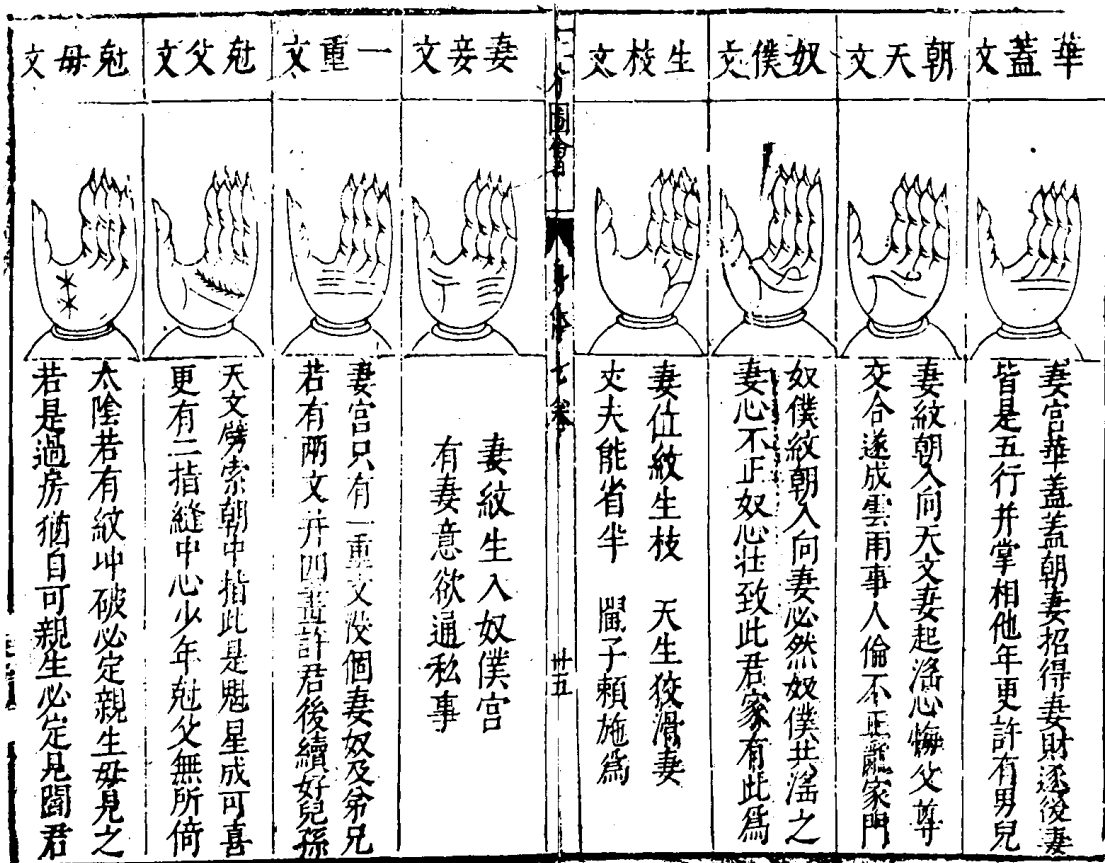 華蓋文
妻宮華蓋蓋朝妻招得妻財逐後妻
皆是五行并掌相他年更許有男兒
朝天文
妻紋朝入向天文妻起滛心悔父尊
交合遂成雲雨事人倫不正亂家門
奴僕文
奴僕紋朝入向妻必然奴僕共滛之
妻心不正奴心壮致此君家有此爲
生枝文
妻位紋生枝 天生狡滑妻
丈夫能省半 閫子頼施爲
圖會
七卷
卅五
妻妾文
妻紋生入奴僕宮
有妻意欲通私事
一重文
妻宮只有一重文没個妻奴及弟兄
若有兩文并四畫許君後續好兒孫
尅父文
天文劈索朝中指此是魁星成可喜
更有二指縫中心少年尅父無所倚
尅母文
太陰若有紋冲破必定親生母見之
若是過房猶自可親生必定見閻君